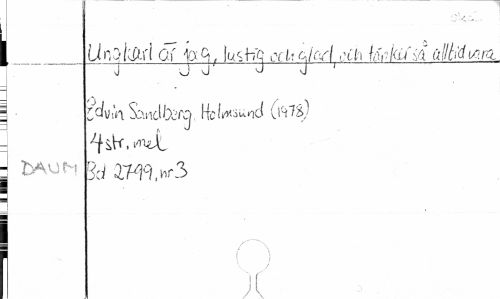 Ungkarl är jag, lustig och glad, och tänker så alltid vara
Edvin Sandberg, Holmsund (1978)
4 str, mel
DAUM Bd 2799, nr 3